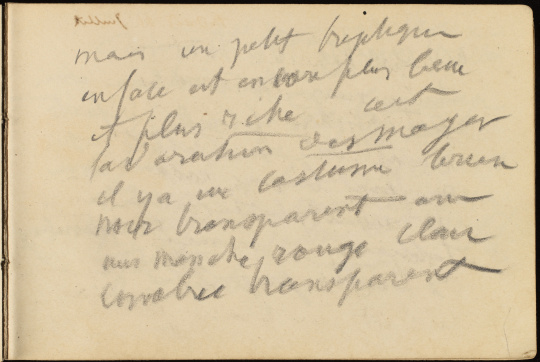 mais un petit triptique
enface est encore plus beau
et plus riche cest
lad'oration des mages
il ya un costume brun
noir transparent
manche rouge clair
transparent